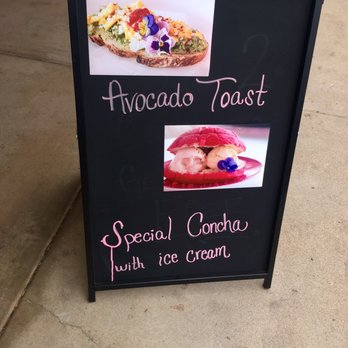 Avocado Toast
Special Concha
with ice cream